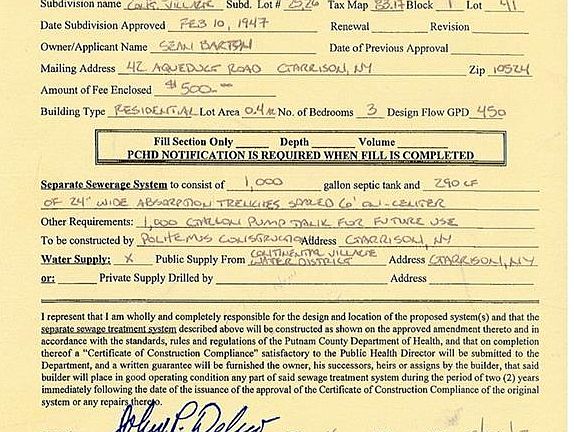 Subdivision name CONT. VILLAGE Subd. Lot # 25,26 Tax Map 83.17 Block 1 Lot 41
Date Subdivision Approved FEB 10, 1947 Renewal Revision
Owner/Applicant Name SEAN BARTON Date of Previous Approval
Mailing Address 42 AQUEDUCT ROAD GARRISON, NY Zip 10524
Amount of Fee Enclosed $500.—
Building Type RESIDENTIAL Lot Area 0.4 AC No. of Bedrooms 3 Design Flow GPD 450
Fill Section Only Depth Volume
PCHD NOTIFICATION IS REQUIRED WHEN FILL IS COMPLETED
Separate Sewerage System to consist of 1,000 gallon septic tank and 290 LF
OF 24" WIDE ABSORPTION TRENCHES SPACED 6' ON-CENTER
Other Requirements: 1,000 GALLON PUMP TANK FOR FUTURE USE
To be constructed by POLHEMUS CONSTRUCTION Address GARRISON, NY
Water Supply: X Public Supply From CONTINENTAL VILLAGE WATER DISTRICT Address GARRISON, NY
or: Private Supply Drilled by Address
I represent that I am wholly and completely responsible for the design and location of the proposed system(s) and that the
separate sewage treatment system described above will be constructed as shown on the approved amendment thereto and in
accordance with the standards, rules and regulations of the Putnam County Department of Health, and that on completion
thereof a "Certificate of Construction Compliance" satisfactory to the Public Health Director will be submitted to the
Department, and a written guarantee will be furnished the owner, his successors, heirs or assigns by the builder, that said
builder will place in good operating condition any part of said sewage treatment system during the period of two (2) years
immediately following the date of the issuance of the approval of the Certificate of Construction Compliance of the original
system or any repairs thereto.